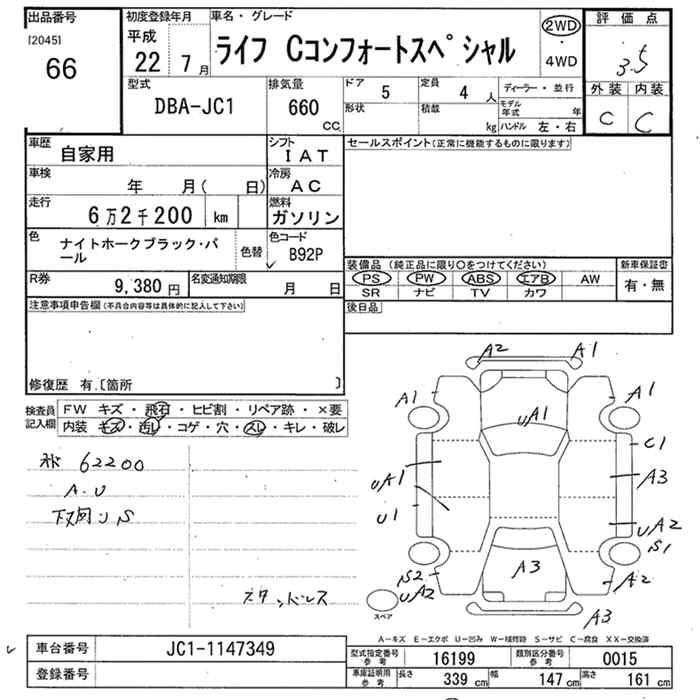 出品番号
[2045]
66
初度登録年月
平成
22 年 7 月
車名・グレード
ライフ Cコンフォートスペシャル
2WD
・
4WD
評価点
3.5
外装 内装
C C
型式
DBA-JC1
排気量
660
CC
ドア 5
定員 4 人
形状
積載 kg
ディーラー・並行
モデル年式 年
ハンドル 左・右
車歴
自家用
シフト
IAT
車検
年 月( 日)
冷房
AC
走行
6万2千200 km
燃料
ガソリン
色
ナイトホークブラック・パール
色替
色コード
B92P
R券
9,380円
名変通知期限
月 日
セールスポイント(正常に機能するものに限ります)
装備品 (純正品に限り○をつけてください)
新車保証書
PS PW ABS エアB AW
SR ナビ TV カワ
有・無
後日品
注意事項申告欄(不具合内容等は具体的に記入して下さい)
修復歴 有〔箇所 〕
検査員記入欄
FW キズ・飛石・ヒビ割・リペア跡・×要
内装 キズ・汚レ・コゲ・穴・スレ・キレ・破レ
62200
A.U
S
スタッドレス
A2 A1
A1 A1
UA1
C1
UA1 A3
U1
UA2
S1
S2
UA2
A3
A2
A3
スペア
A-キズ E-エクボ U-凹み W-補修跡 S-サビ C-腐食 XX-交換済
車台番号 JC1-1147349
登録番号
型式指定番号 参考 16199
類別区分番号 参考 0015
車庫証明用 参考
長さ 339 cm
幅 147 cm
高さ 161 cm